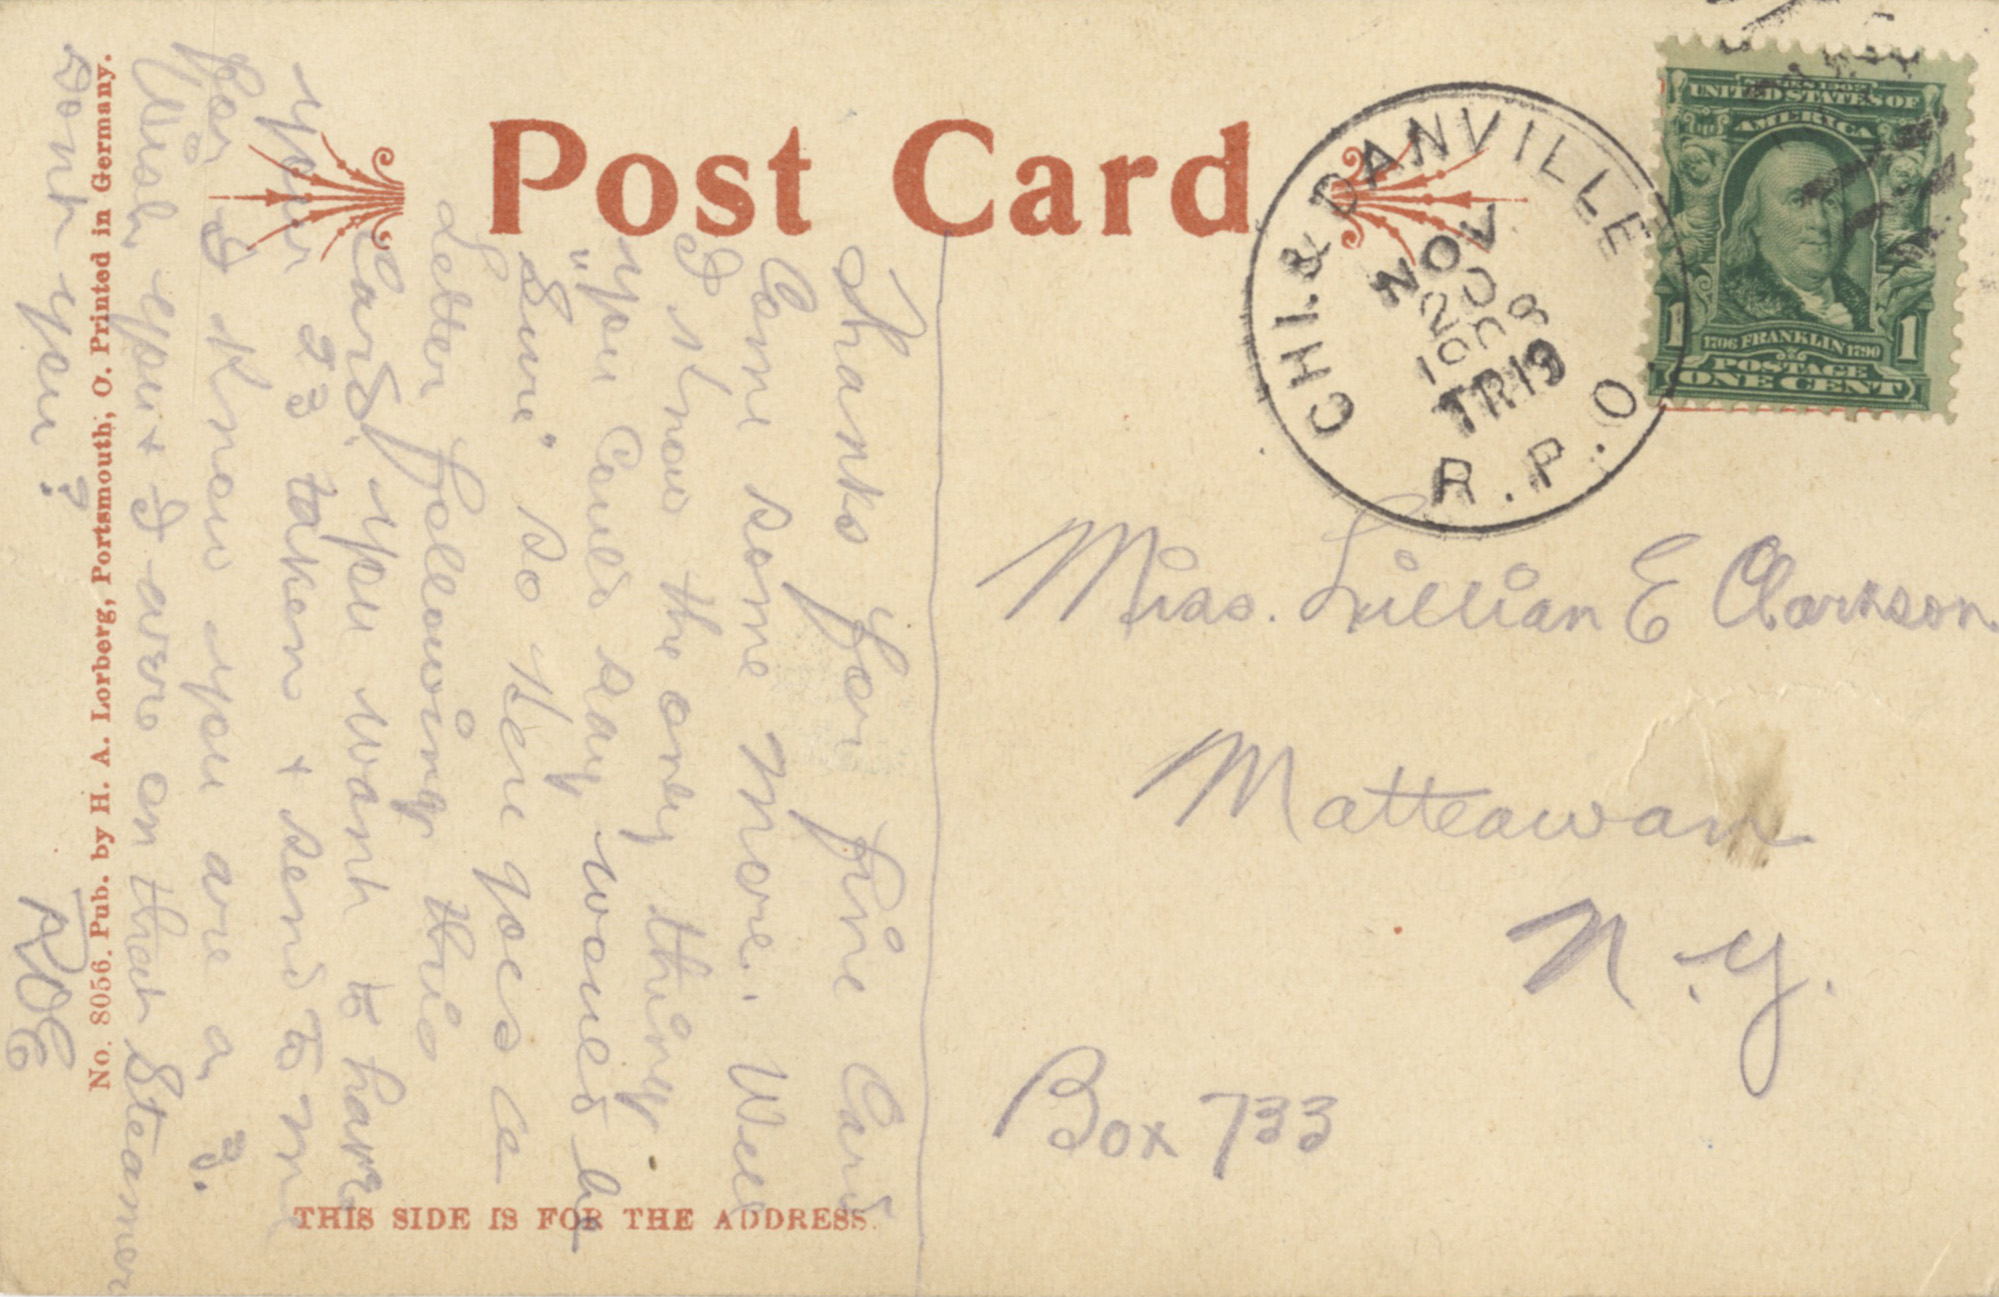 Post Card
CHI. & DANVILLE
NOV
20
1908
TR19
R.P.O.
SERIES 1902
UNITED STATES OF
AMERICA
1706 FRANKLIN 1790
POSTAGE
1 1
ONE CENT
Miss. Lillian E Clarkson
Matteawan
N.Y.
Box 733
Thanks for fine Card
Come some more. Well
I know the only thing
you Could say would be
"Sure" so Here goes a
Letter following this
Card, you want to have
your 23 taken + send to m
for I Know you are a 23.
Wish you + I were on that Steamer
Dont you?
ROE
No. 8056. Pub. by H. A. Lorberg, Portsmouth, O. Printed in Germany.
THIS SIDE IS FOR THE ADDRESS.